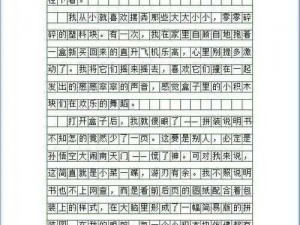 在下着。
我从小就喜欢摆弄那些大大小小，零零碎
碎的塑料块。有一次，我在家里自顾自地抱着
一盒就买回来的直升飞机乐高，心里别提多激
动了。我将它们摇来摇去，喜欢它们撞在一起
发出的窸窸窣窣的声音，感觉盒子里的小积木
块们在欢乐的舞蹈。
打开盒子后，我就傻眼了——拼装说明书
不知怎的竟然少了一页。这要是别人，必定是
孙悟空大闹南天门——慌了神。可对我来说，
这简直就是小菜一碟，游刃有余。我不但说明
书也不上网查，而是看前后页的图纸配合着包
装上的样式，在大脑里形成了一幅简易版的拼